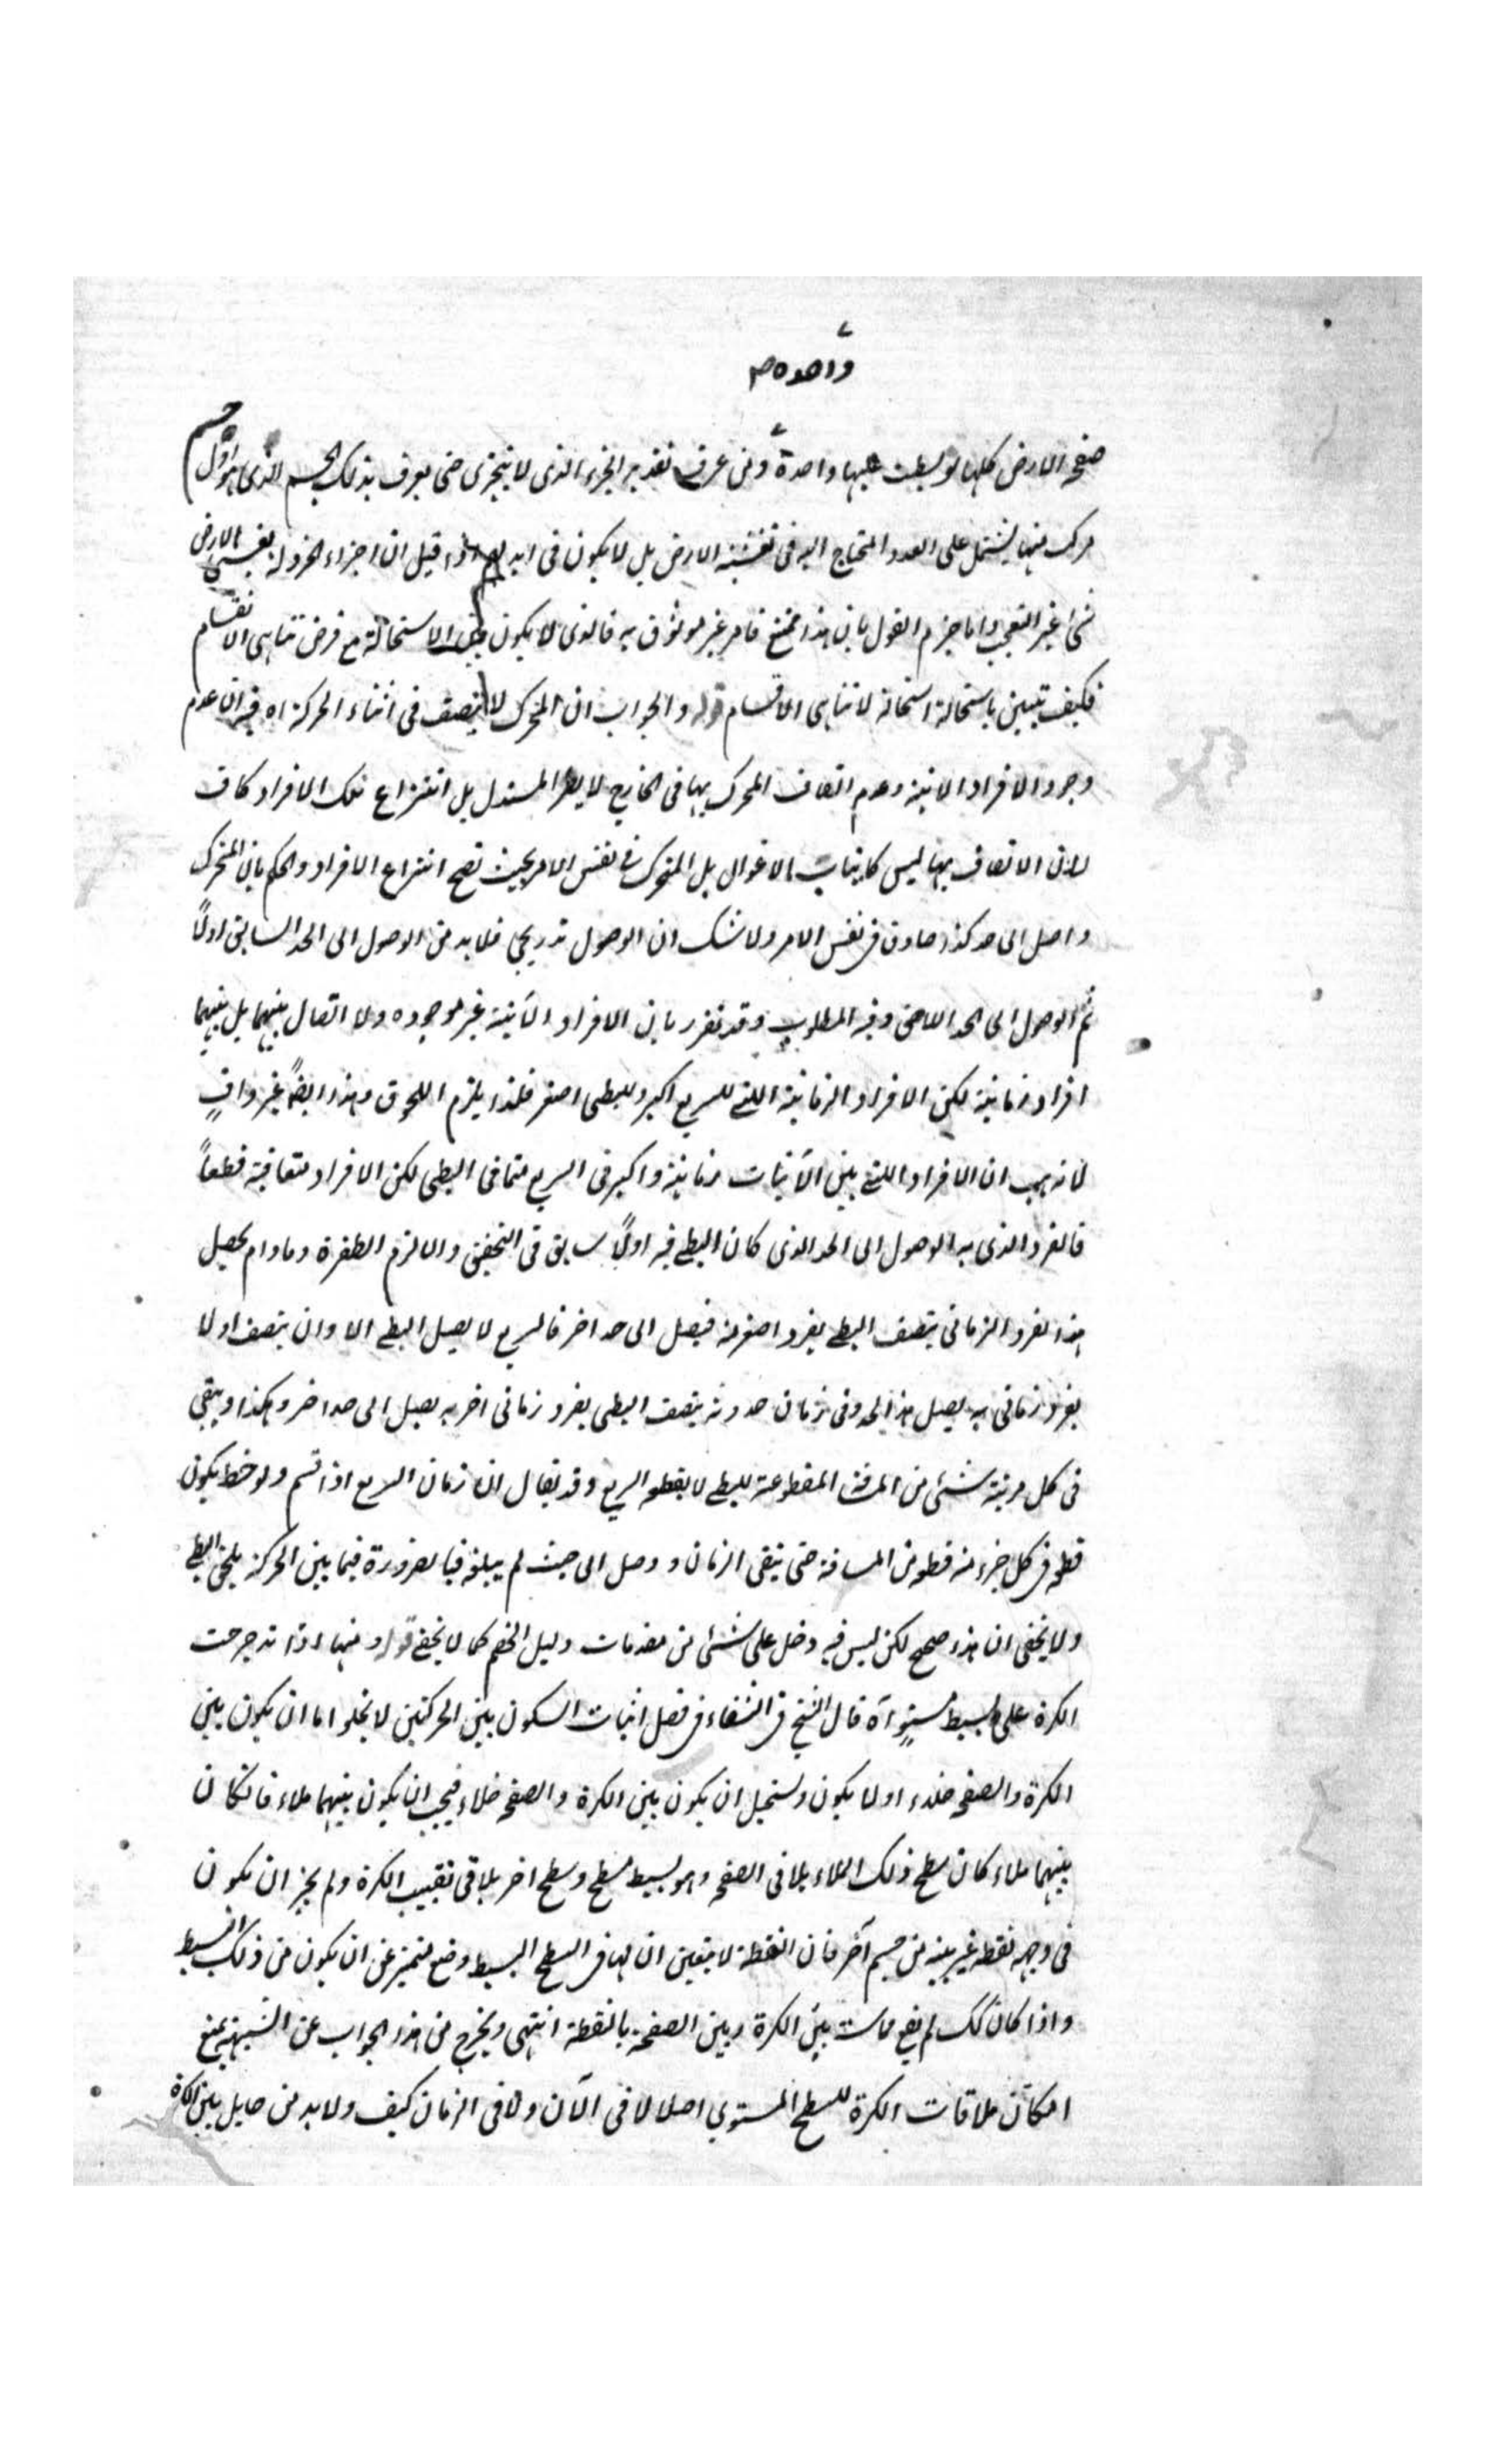 واحده ص
صفحة الارض كلها لو بسطت عليها واحدة ومن عرف تقدير الجزء الذى لا يتجزى حتى يعرف بذلك الجسم الذى هو اول جسم
مركب منها يشتمل على العدد المحتاج اليه فى تغشية الارض بل لا يكون فى ايديهم اذا قيل ان اجزاء الخردلة يغشى الارض
شئ غير التعجب واما جزم القول بان هذا ممتنع فامر غير موثوق به فالذى لا يكون بين الاستحالة مع فرض تناهى الانقسام
فكيف تبين باستحالة استحالة لا تناهى الاقسام قوله والجواب ان المتحرك لا يتصف فى اثناء الحركة اه فيه ان عدم
وجود الافراد الانية وعدم اتصاف المتحرك بها فى الخارج لا يضر المستدل بل انتزاع تلك الافراد كاف
لان الاتصاف بها ليس كانياب الاغوال بل المتحرك فى نفس الامر بحيث تصح انتزاع الافراد والحكم بان المتحرك
واصل الى حد كذا صادق فى نفس الامر ولا شك ان الوصول تدريجى فلا بد من الوصول الى الحد السابق اولاً
ثم الوصول الى الحد اللاحق وفيه المطلوب وقد تقرر بان الافراد الآنية غير موجوده ولا اتصال بينهما بل بينهما
افراد زمانية لكن الافراد الزمانية اللتى للسريع اكبر وللبطى اصغر فلذا يلزم اللحوق وهذا ايضاً غير وافٍ
لانه هب ان الافراد اللتى بين الآنيات زمانية واكبر فى السريع مما فى البطى لكن الافراد متعاقبة قطعاً
فالفرد الذى به الوصول الى الحد الذى كان البطى فيه اولاً سابق فى التحقق والا لزم الطفرة وما دام يحصل
هذا الفرد الزمانى يتصف البطى بفرد اصغر منه فيصل الى حد اخر فالسريع لا يصل البطى الا وان يتصف اولا
بفرد زمانى به يصل هذا الحد وفى زمان حدوثه يتصف البطى بفرد زمانى اخر به يصل الى حد اخر وهكذا ويبقى
فى كل مرتبة شئى من المسافة المقطوعة للبطى لا يقطعه السريع وقد يقال ان زمان السريع اذا قسم ولوحظ يكون
قطعه فى كل جزء منه قطعه من المسافة حتى ينقى الزمان ووصل الى حيث لم يبلغه فبالضرورة فيما بين الحركة يلحق البطى
ولا يخفى ان هذا صحيح لكن ليس فيه دخل على شئى من مقدمات دليل الخصم كما لا يخفى قوله ومنها اذا تدحرجت
الكرة على بسيط مستوٍ آه قال الشيخ فى الشفاء فى فصل اثبات السكون بين الحركتين لا يخلو اما ان يكون بين
الكرة والصفحه خلاء او لا يكون ويستحيل ان يكون بين الكرة والصفحه خلاء فيجب ان يكون بينهما ملاء فان كان
بينهما ملاء كان سطح ذلك الملاء يلاقى الصفحه وهو بسيط مسطح وسطح اخر يلاقى تقبيب الكرة ولم يجز ان يكون
فى وجهه نقطه غير بينه من جسم آخر فان النقطة لا يتعين ان لها فى السطح البسيط وضع متميز عن ان يكون من ذلك البسيط
واذا كان كك لم يقع مماسة بين الكرة وبين الصفحة بالنقطة انتهى ويخرج من هذا الجواب عن الشبهة بمنع
امكان ملاقات الكرة للسطح المستوى اصلا لا فى الآن ولا فى الزمان كيف ولا بد من حايل بين الكرة